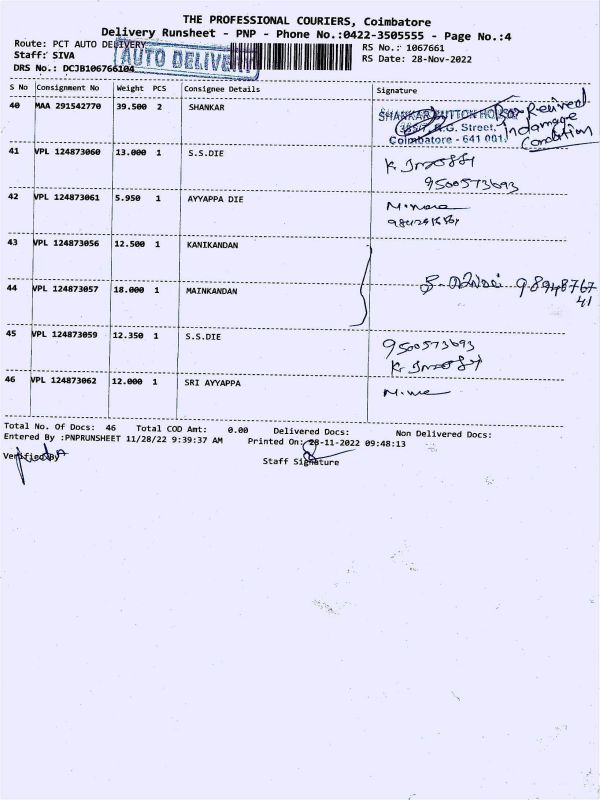 THE PROFESSIONAL COURIERS, Coimbatore
Delivery Runsheet - PNP - Phone No.:0422-3505555 - Page No.:4
Route: PCT AUTO DELIVERY
RS No.: 1067661
Staff: SIVA
AUTO DELIVERY
RS Date: 28-Nov-2022
DRS No.: DCJB106766104
S No Consignment No Weight PCS Consignee Details Signature
40 MAA 291542770 39.500 2 SHANKAR
SHANKAR BUTTON HOUSE
Received
385/7, N.G. Street, In damage
Coimbatore - 641 001. Condition
41 VPL 124873060 13.000 1 S.S.DIE
9500573693
42 VPL 124873061 5.950 1 AYYAPPA DIE
43 VPL 124873056 12.500 1 KANIKANDAN
44 VPL 124873057 18.000 1 MAINKANDAN
98948767
41
45 VPL 124873059 12.350 1 S.S.DIE
9500573693
46 VPL 124873062 12.000 1 SRI AYYAPPA
Total No. Of Docs: 46 Total COD Amt: 0.00 Delivered Docs: Non Delivered Docs:
Entered By :PNPRUNSHEET 11/28/22 9:39:37 AM Printed On: 28-11-2022 09:48:13
Verified By
Staff Signature